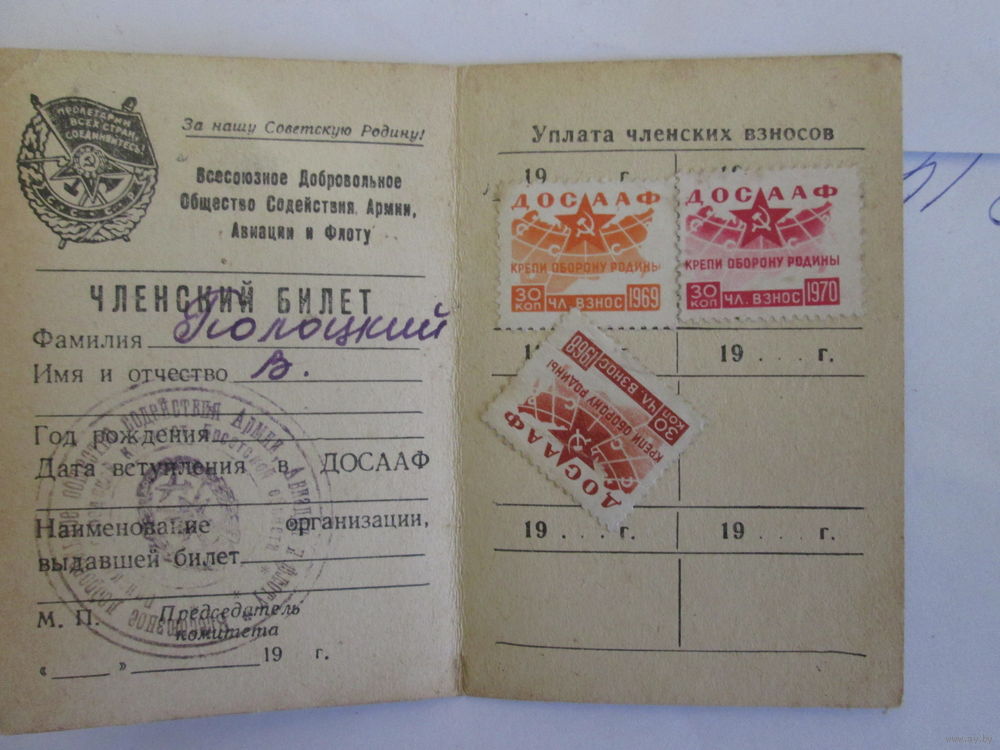 ПРОЛЕТАРИИ
ВСЕХ СТРАН,
СОЕДИНЯЙТЕСЬ!
С·С·С·Р
За нашу Советскую Родину!
Всесоюзное Добровольное
Общество Содействия Армии,
Авиации и Флоту
ЧЛЕНСКИЙ БИЛЕТ
Фамилия Полоцкий
Имя и отчество В.
Год рождения
Дата вступления в ДОСААФ
Наименование организации,
выдавшей билет
М. П. Председатель
комитета
« » 19 г.
Уплата членских взносов
19 г. 19
ДОСААФ
КРЕПИ ОБОРОНУ РОДИНЫ
30 КОП ЧЛ. ВЗНОС 1969
ДОСААФ
КРЕПИ ОБОРОНУ РОДИНЫ
30 КОП ЧЛ. ВЗНОС 1970
19 . . . г.
ДОСААФ
КРЕПИ ОБОРОНУ РОДИНЫ
30 КОП ЧЛ. ВЗНОС 1968
19 . . . г. 19 . . . г.
www.ay.by